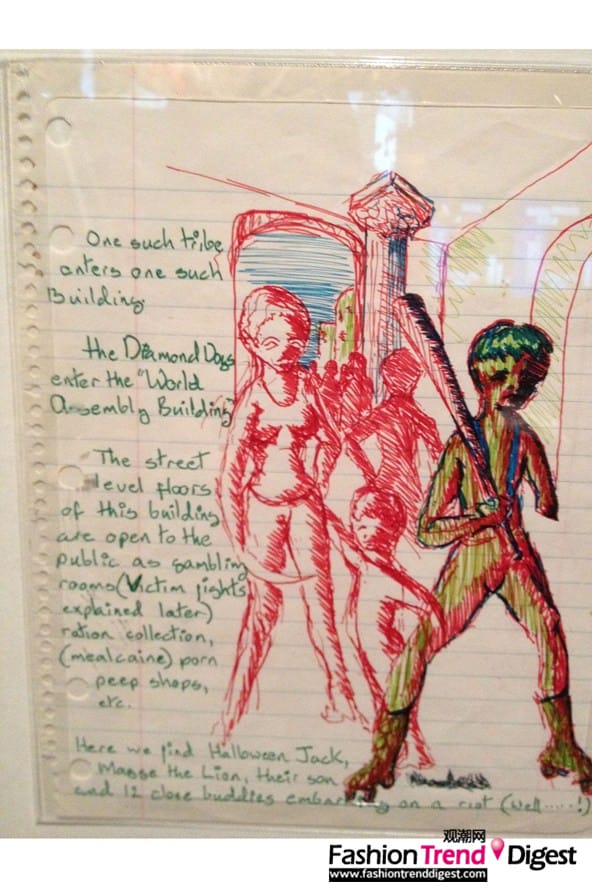 One such tribe
enters one such
Building.
the Diamond Dogs
enter the "World
Assembly Building"
The street
level floors
of this building
are open to the
public as gambling
rooms (Victim fights
explained later)
ration collection,
(mealcaine) porn
peep shops,
etc.
Here we find Halloween Jack,
the Lion, their son
and 12 close buddies embarking on a riot (Well.....!)
观潮网
Fashion Trend Digest
www.fashiontrenddigest.com